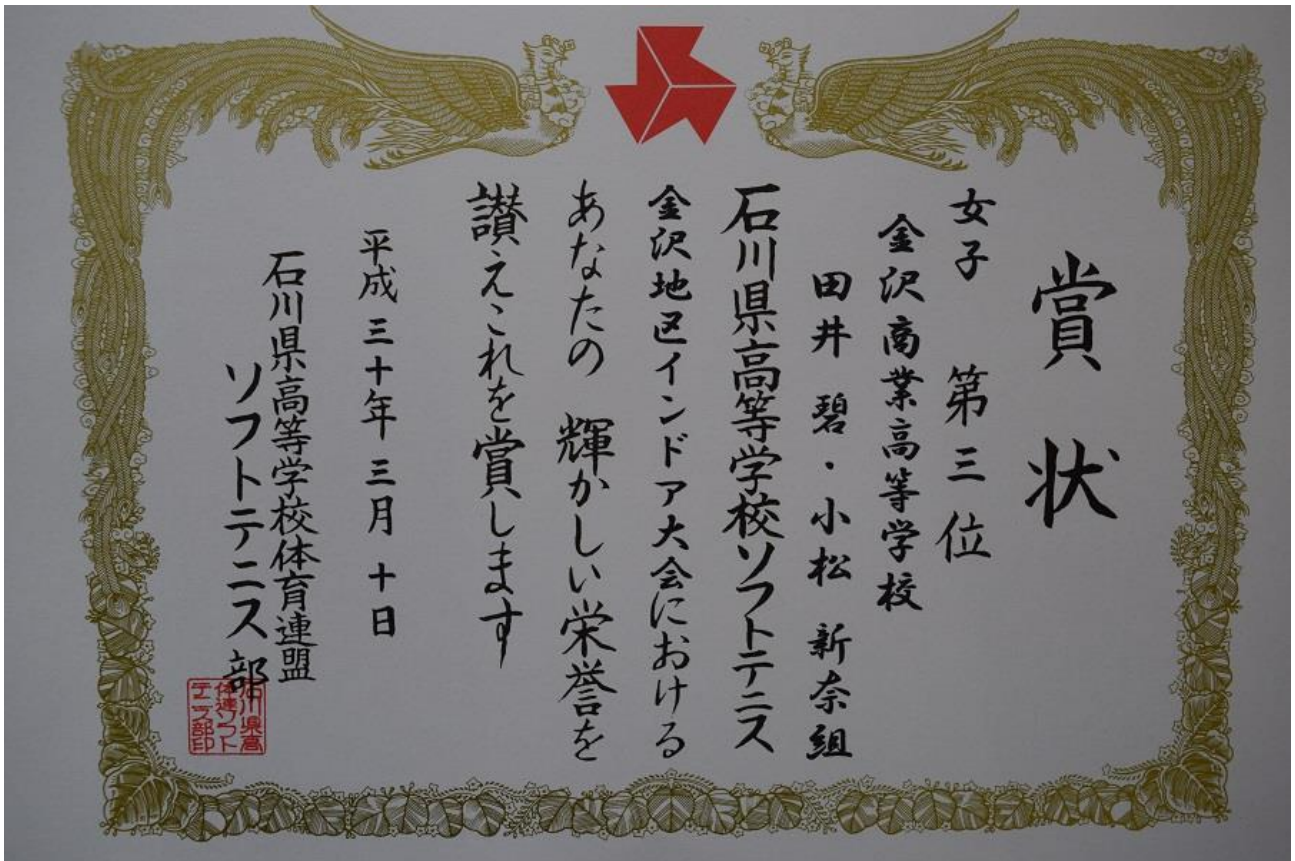 賞状
女子 第三位
金沢商業高等学校
田井 碧・小松 新奈組
石川県高等学校ソフトテニス
金沢地区インドア大会における
あなたの 輝かしい栄誉を
讃えこれを賞します
平成三十年三月十日
石川県高等学校体育連盟
ソフトテニス部
石川県高
体連ソフト
テニス部印